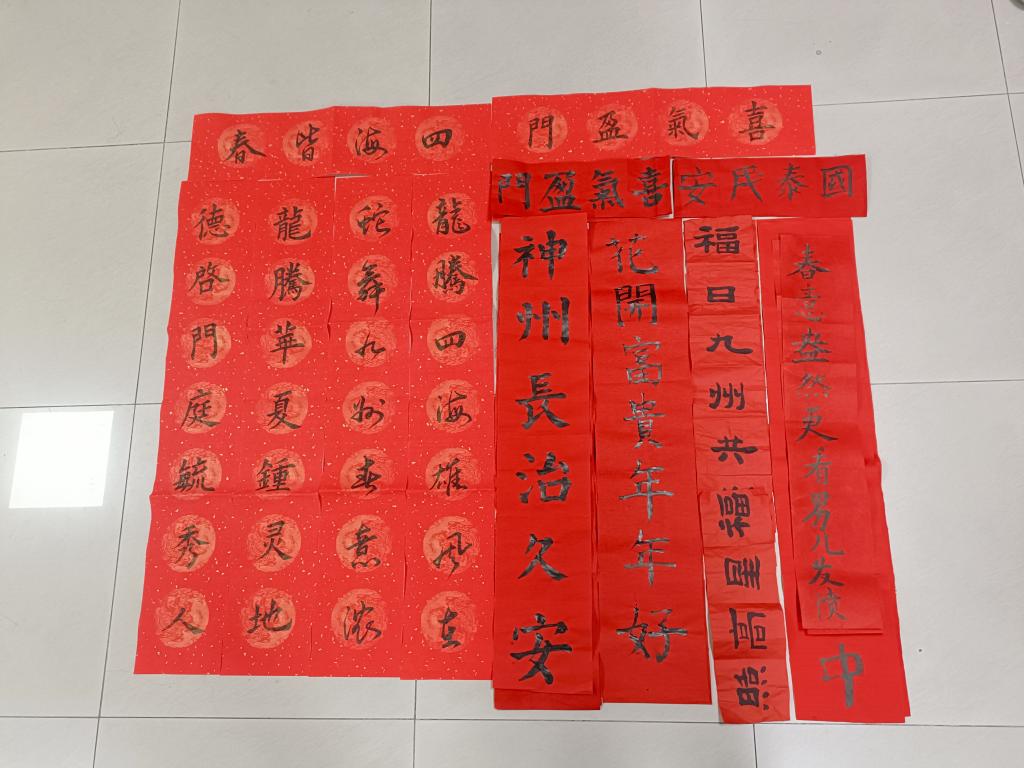 四海皆春
喜氣盈門
喜氣盈門
國泰民安
龍騰四海雄風在
蛇舞九州春意濃
龍騰華夏鍾灵地
德啓門庭毓秀人
神州長治久安
花開富貴年年好
福日九州共
福星高照
春意盎然更看男儿发
中